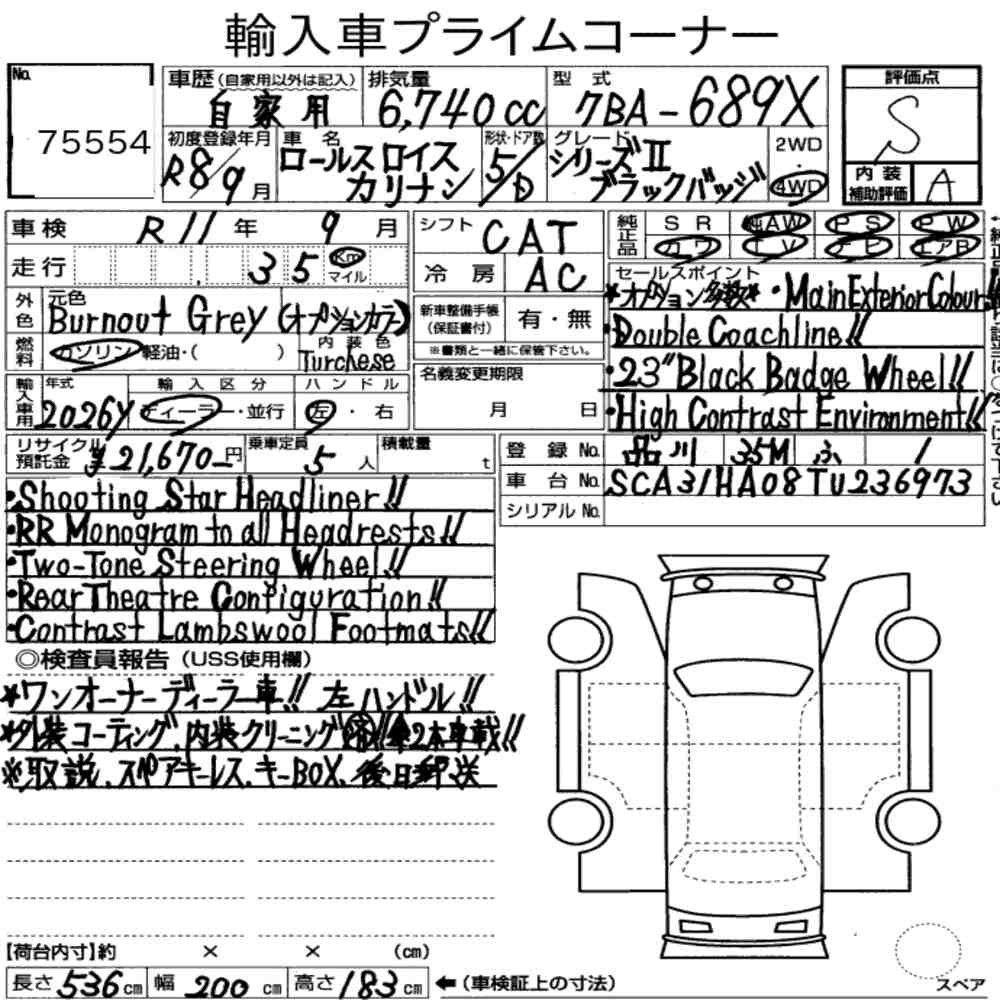 輸入車プライムコーナー
No. 75554
車歴(自家用以外は記入) 自家用
排気量 6,740cc
型式 7BA-689X
評価点 S
内装補助評価 A
初度登録年月 R8/9月
車名 ロールスロイス カリナン
形状・ドア数 5/D
グレード シリーズⅡ ブラックバッジ
2WD・4WD
車検 R11年 9月
走行 35 Km マイル
シフト CAT
冷房 AC
純正品 SR 純AW PS PW
カワ TV ナビ エアB
外色 元色 Burnout Grey (オプションカラー)
燃料 ガソリン・軽油・( )
内装色 Turchese
新車整備手帳(保証書付) 有・無
※書類と一緒に保管下さい。
セールスポイント
*オプション多数*・Main Exterior Colour!!
・Double Coachline!!
・23" Black Badge Wheel!!
・High Contrast Environment!!
輸入車用 年式 2026y
輸入区分 ディーラー・並行
ハンドル 左・右
名義変更期限 月 日
リサイクル預託金 ¥21,670-円
乗車定員 5人
積載量 t
登録No. 品川 35M ふ 1
車台No. SCA31HA08TU236973
シリアルNo.
・Shooting Star Headliner!!
・RR Monogram to all Headrests!!
・Two-Tone Steering Wheel!!
・Rear Theatre Configuration!!
・Contrast Lambswool Footmats!!
◎検査員報告(USS使用欄)
*ワンオーナーディーラー車!! 左ハンドル!!
*外装コーティング、内装クリーニング済!! 傘2本車載!!
※取説、スペアキーレス、キーBOX、後日郵送
【荷台内寸】約 × × (cm)
長さ 536cm 幅 200cm 高さ 183cm ←(車検証上の寸法)
スペア